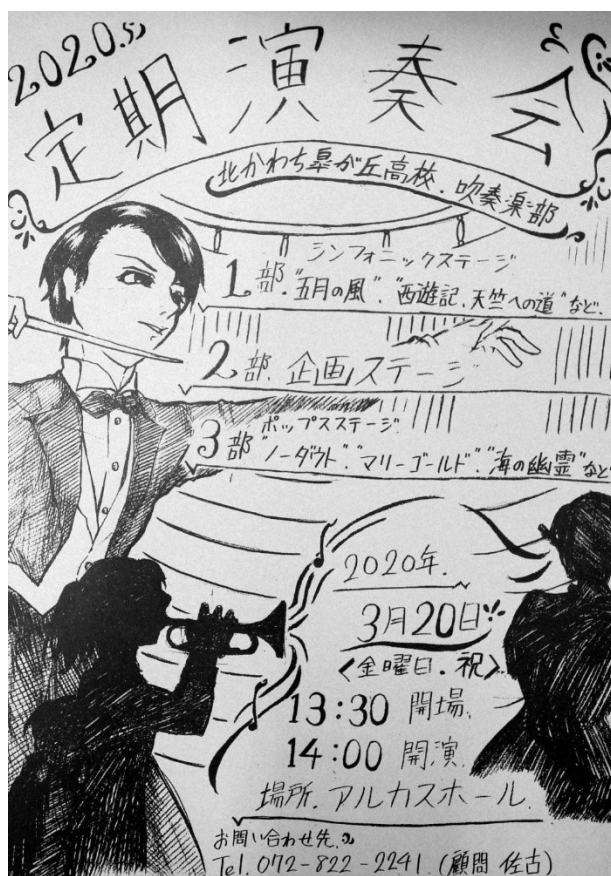 2020.
定期演奏会
北かわち皐が丘高校.吹奏楽部
1部.シンフォニックステージ
"五月の風"."西遊記.天竺への道"など.
2部.企画ステージ
3部 ポップスステージ.
"ノーダウト"."マリーゴールド"."海の幽霊"など
2020年.
3月20日
<金曜日.祝>
13:30 開場.
14:00 開演.
場所.アルカスホール.
お問い合わせ先.
Tel.072-822-2241.(顧問 佐古)